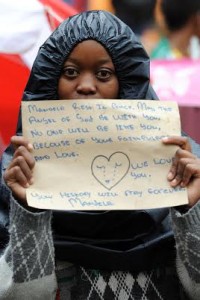 MANDELA REST IN PEACE. MAY THE
ANGEL OF GOD BE WITH YOU.
NO ONE WILL BE LIKE YOU,
BECAUSE OF YOUR
AND LOVE.
WE LOVE
YOU,
YOUR HISTORY WILL STAY FOREVER
MANDELA